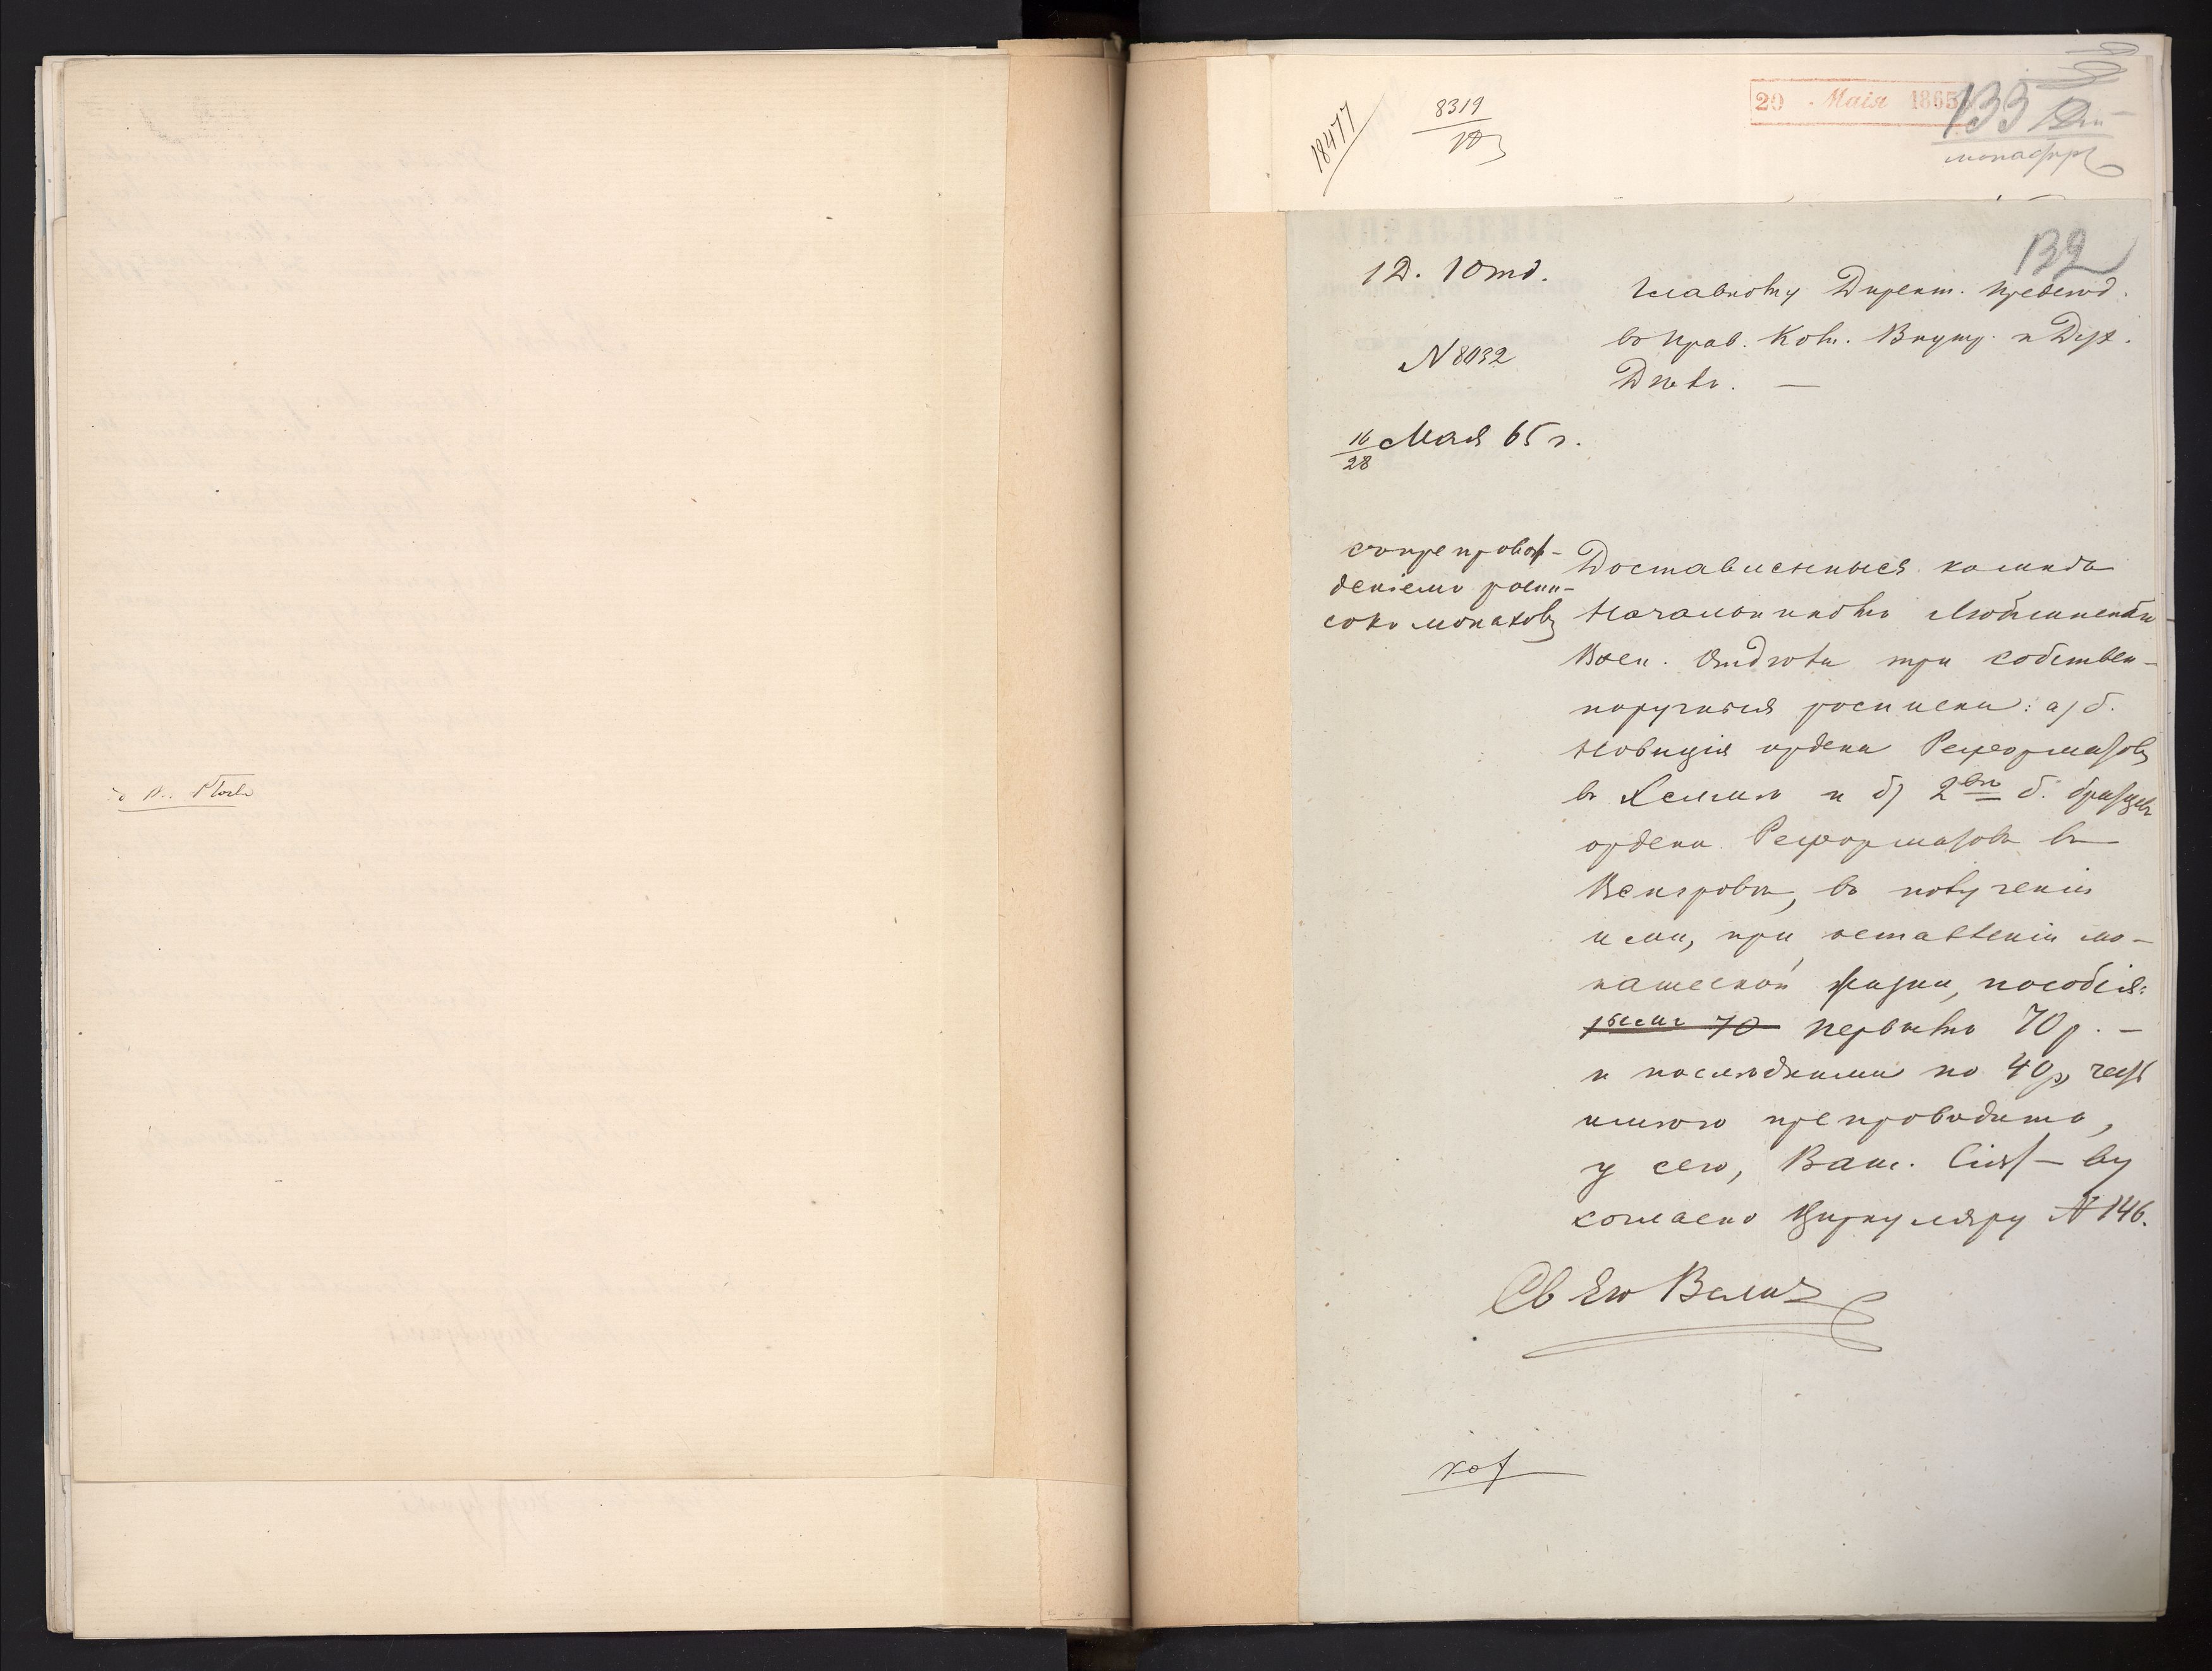 18477
8319
20 Маія 1865
133
132
1 Д. 1 Отд.
№ 8032
16/28 Мая 65 г.
Главному Директ. Предсѣд.
въ Прав. Ком. Внутр. и Дух.
Дѣлъ. —
съ препровож-
деніемъ роспи-
сокъ монаховъ
Доставленныя ко мнѣ
Начальникомъ Люблинскаго
Воен. Отдѣла три собствен-
норучныя росписки: а) б.
Новиція ордена Реформатовъ
въ Хелмѣ и б) 2хъ б. братчиковъ
ордена Реформатовъ въ
Венгровѣ, въ полученіи
ими, при оставленіи мо-
нашеской жизни, пособія:
70 первымъ 70 р. —
и послѣдними по 40 р, честь
имѣю препроводить,
у сего, Ваш. Сіят–ву
согласно Циркуляру № 146.
Св Его Велич